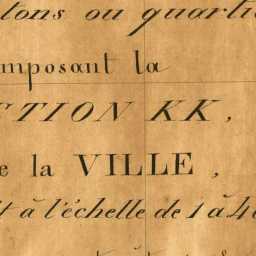 tons ou quarti
mposant la
CTION KK,
e la VILLE,
t à l'échelle de 1 à 4